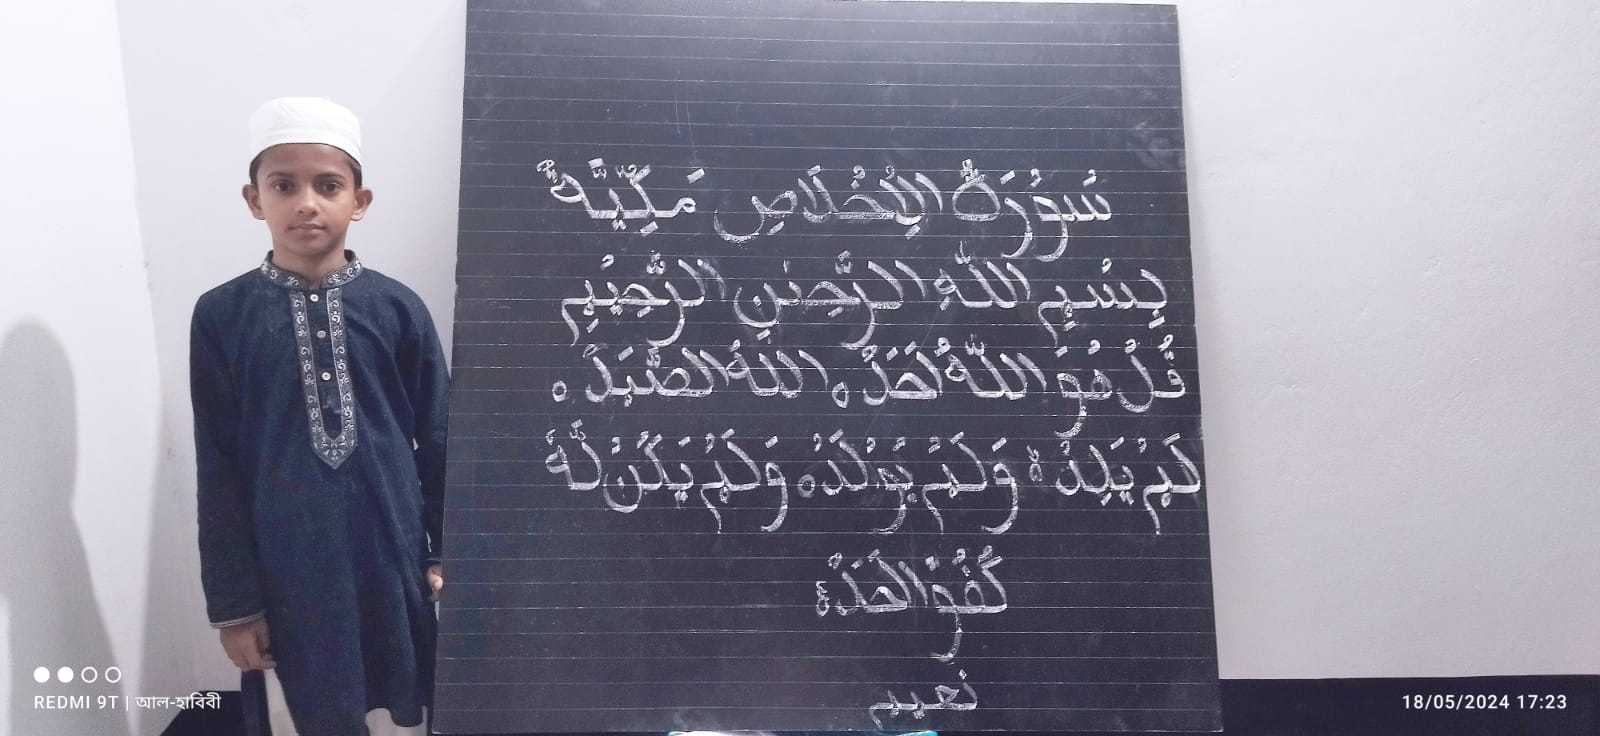 سُوْرَةُ الْاِخْلَاصِ مَكِّيَّةٌ
بِسْمِ اللّٰهِ الرَّحْمٰنِ الرَّحِيْمِ
قُلْ هُوَ اللّٰهُ اَحَدٌ ۝ اَللّٰهُ الصَّمَدُ ۝
لَمْ يَلِدْ ۝ وَلَمْ يُوْلَدْ ۝ وَلَمْ يَكُنْ لَّهٗ
كُفُوًا اَحَدٌ
نعيم
REDMI 9T | আল-হাবিবী
18/05/2024 17:23